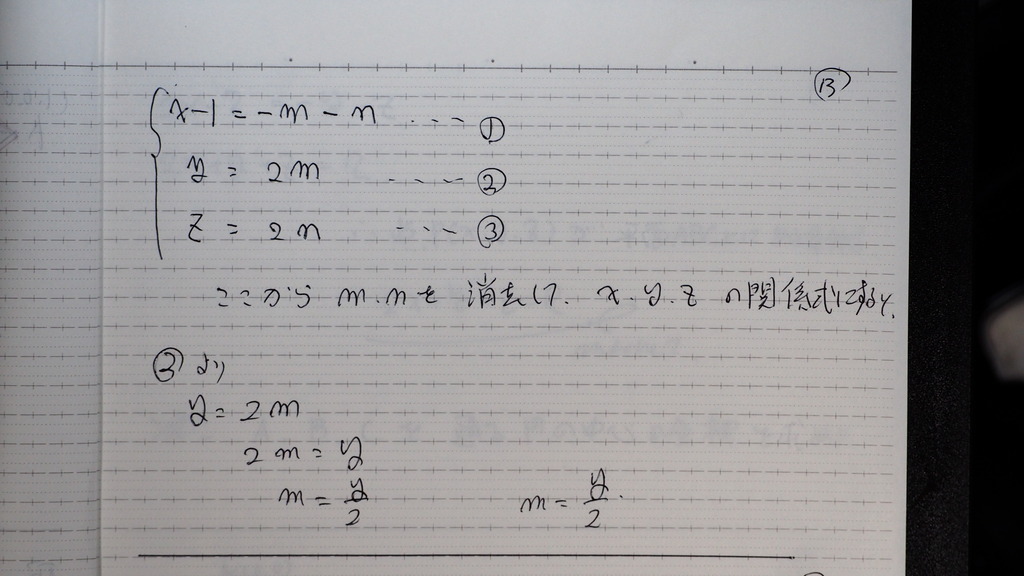 ⑬
x-1 = -m - n ... ①
y = 2m ... ②
z = 2n ... ③
ここから m.nを 消去して. x.y.z の関係式にすると.
②より
y = 2m
2m = y
m = y/2 m = y/2.